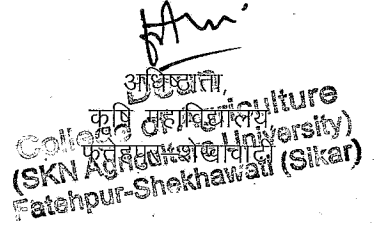 अधिष्ठाता,
कृषि महाविद्यालय,
फतेहपुर-शेखावाटी
College of Agriculture
(SKN Agriculture University)
Fatehpur-Shekhawati (Sikar)